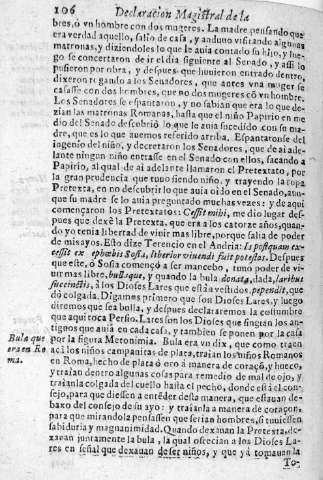 106 Declaracion Magistral de la
bres, ò vn hombre con dos mugeres. La madre pensando que
era verdad aquello, salio de casa, y anduuo visitando algunas
matronas, y diziendoles lo que le auia contado su hijo, y lue-
go se concertaron de ir el dia siguiente al Senado, y assi lo
pusieron por obra, y despues que huuieron entrado dentro,
dixeron rogando a los Senadores, que antes vna muger se
casasse con dos hombres, que no dos mugeres cõ vn hombre.
Los Senadores se espantaron, y no sabian que era lo que de-
zian las matronas Romanas, hasta que el niño Papirio en me
dio del Senado descubriò lo que le auia sucedido con su ma-
dre, que es lo que auemos referido arriba. Espantaronse del
ingenio del niño, y decretaron los Senadores, que de ai ade-
lante ningun niño entrasse en el Senado con ellos, sacando a
Papirio, al qual de ai adelante llamaron el Pretextato, por
la gran prudencia que tuuo siendo niño, y trayendo la ropa
Pretexta, en no descubrir lo que auia oido en el Senado, aun-
que su madre se lo auia preguntado muchas vezes: y de aqui
començaron los Pretextatos: Cessit mihi, me dio lugar des-
pues que dexè la Pretexta, que era a los catorze años, quan-
do yo tenia libertad de viuir mas libre, porque salia de poder
de mis ayos. Esto dize Terencio en el Andria: Is postquam ex-
cessit ex ephœbis Sosia, liberior viuendi fuit potestas. Despues
que este, ò Sosia començò a ser mancebo, tuuo poder de vi-
uir mas libre, bullaque, y quando la bula donata, dada, laribus
succinctis, à los Dioses Lares que està a vestidos, pependit, que
dò colgada. Digamos primero que son Dioses Lares, y luego
diremos que sea bulla, y despues declararemos la costumbre
que aqui toca Persio. Lares son los Dioses que fingian los an-
tiguos que auia en cada casa, y tambien se ponen por la casa
por la figura Metonimia. Bula era vn dix, que como traen
acà los niños campanitas de plata, traian los niños Romanos
en Roma, hecho de plata ò oro à manera de coraçõ, y hueco,
y traían dentro algunas cosas para remedio de mal de ojo, y
traíanla colgada del cuello hasta el pecho, donde està el con-
sejo, para que diessen a entẽder desta manera, que estauan de-
baxo del consejo de su ayo: y traíanla a manera de coraçon,
para que mirandola pensassen que serian hombres, si tuuiessen
sabiduria y magnanimidad. Quando dexauan la Pretexta, de-
xauan juntamente la bula, la qual ofrecian a los Dioses La-
res en señal que dexauan de ser niños, y que yà tomauan la
To-
Bula que
era en Ro
ma.